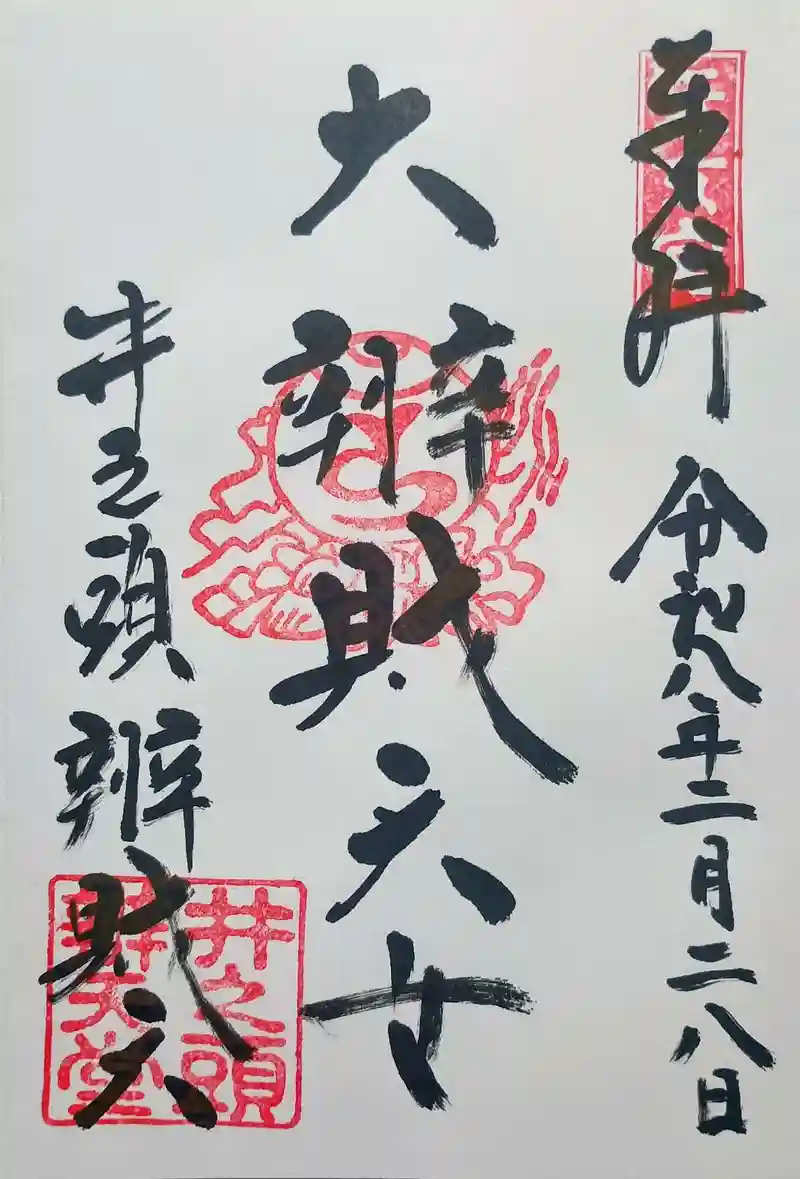 奉拝 令和八年二月二八日
大辨財天女
井之頭辨財天
井之頭
辨天堂